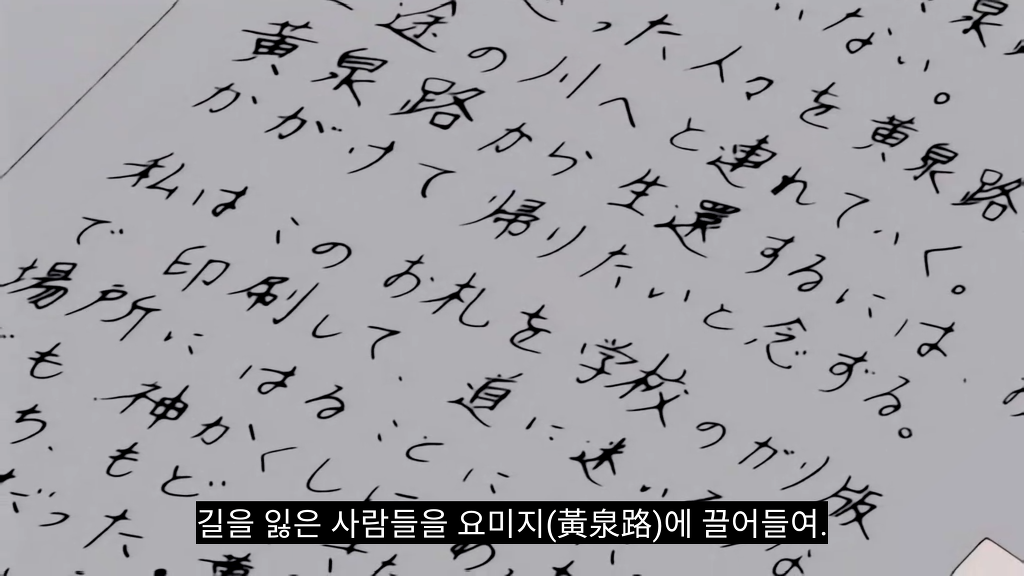 泉
いない。
った人々を黄泉路
途の川へと連れていく。
黄泉路から生還するには
かかげて帰りたいと念ずる。
私はこのお札を学校のガリ版
で印刷して、道に迷
場所にはるごとに
も神かくしに
ち、もど
だった
길을 잃은 사람들을 요미지(黃泉路)에 끌어들여.